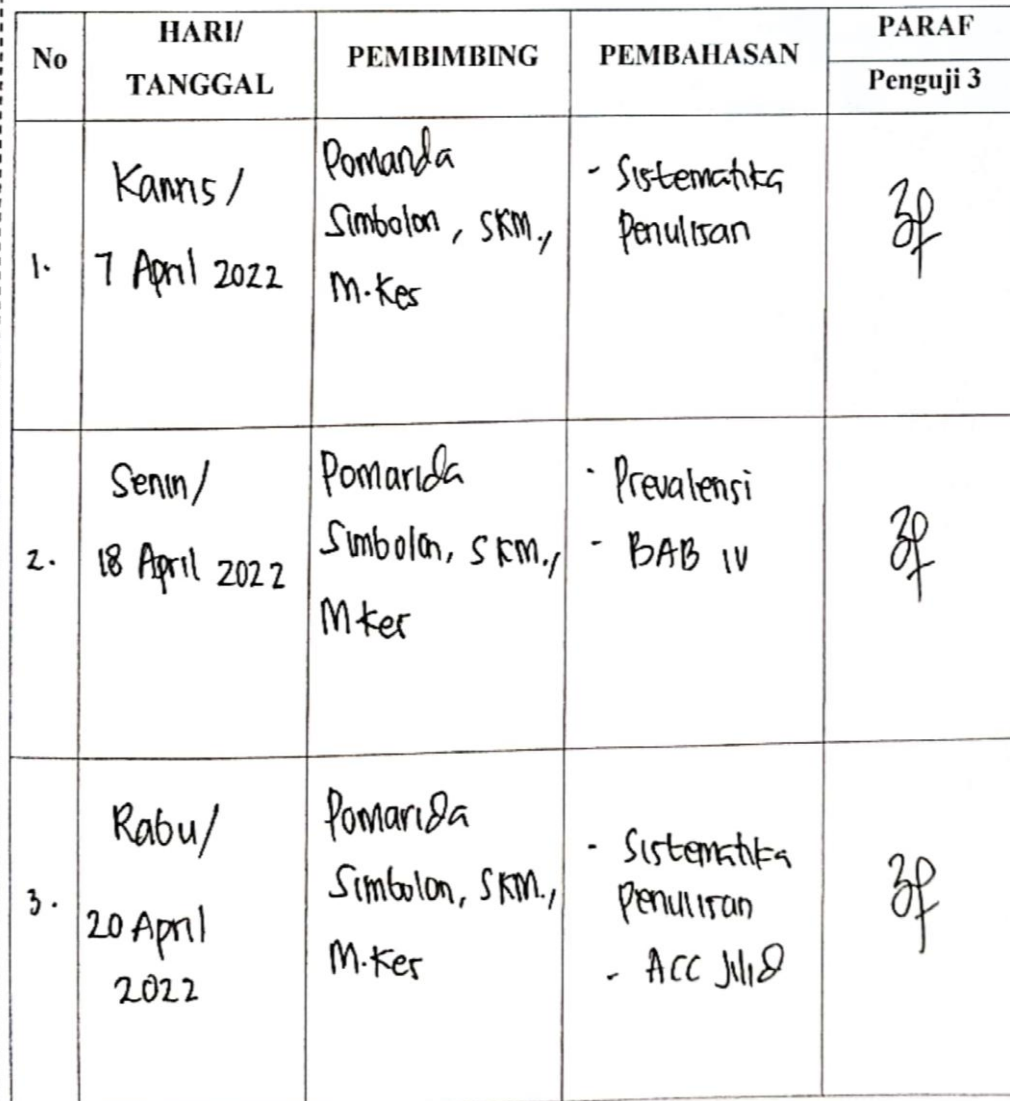 No
HARI/
TANGGAL
PEMBIMBING
PEMBAHASAN
PARAF
Penguji 3
1.
Kamis/
7 April 2022
Pomarida
Simbolon, SKM.,
M.Kes
- Sistematika
Penulisan
2.
Senin/
18 April 2022
Pomarida
Simbolon, SKM.,
M.Kes
- Prevalensi
- BAB IV
3.
Rabu/
20 April
2022
Pomarida
Simbolon, SKM.,
M.Kes
- Sistematika
Penulisan
- ACC Jilid